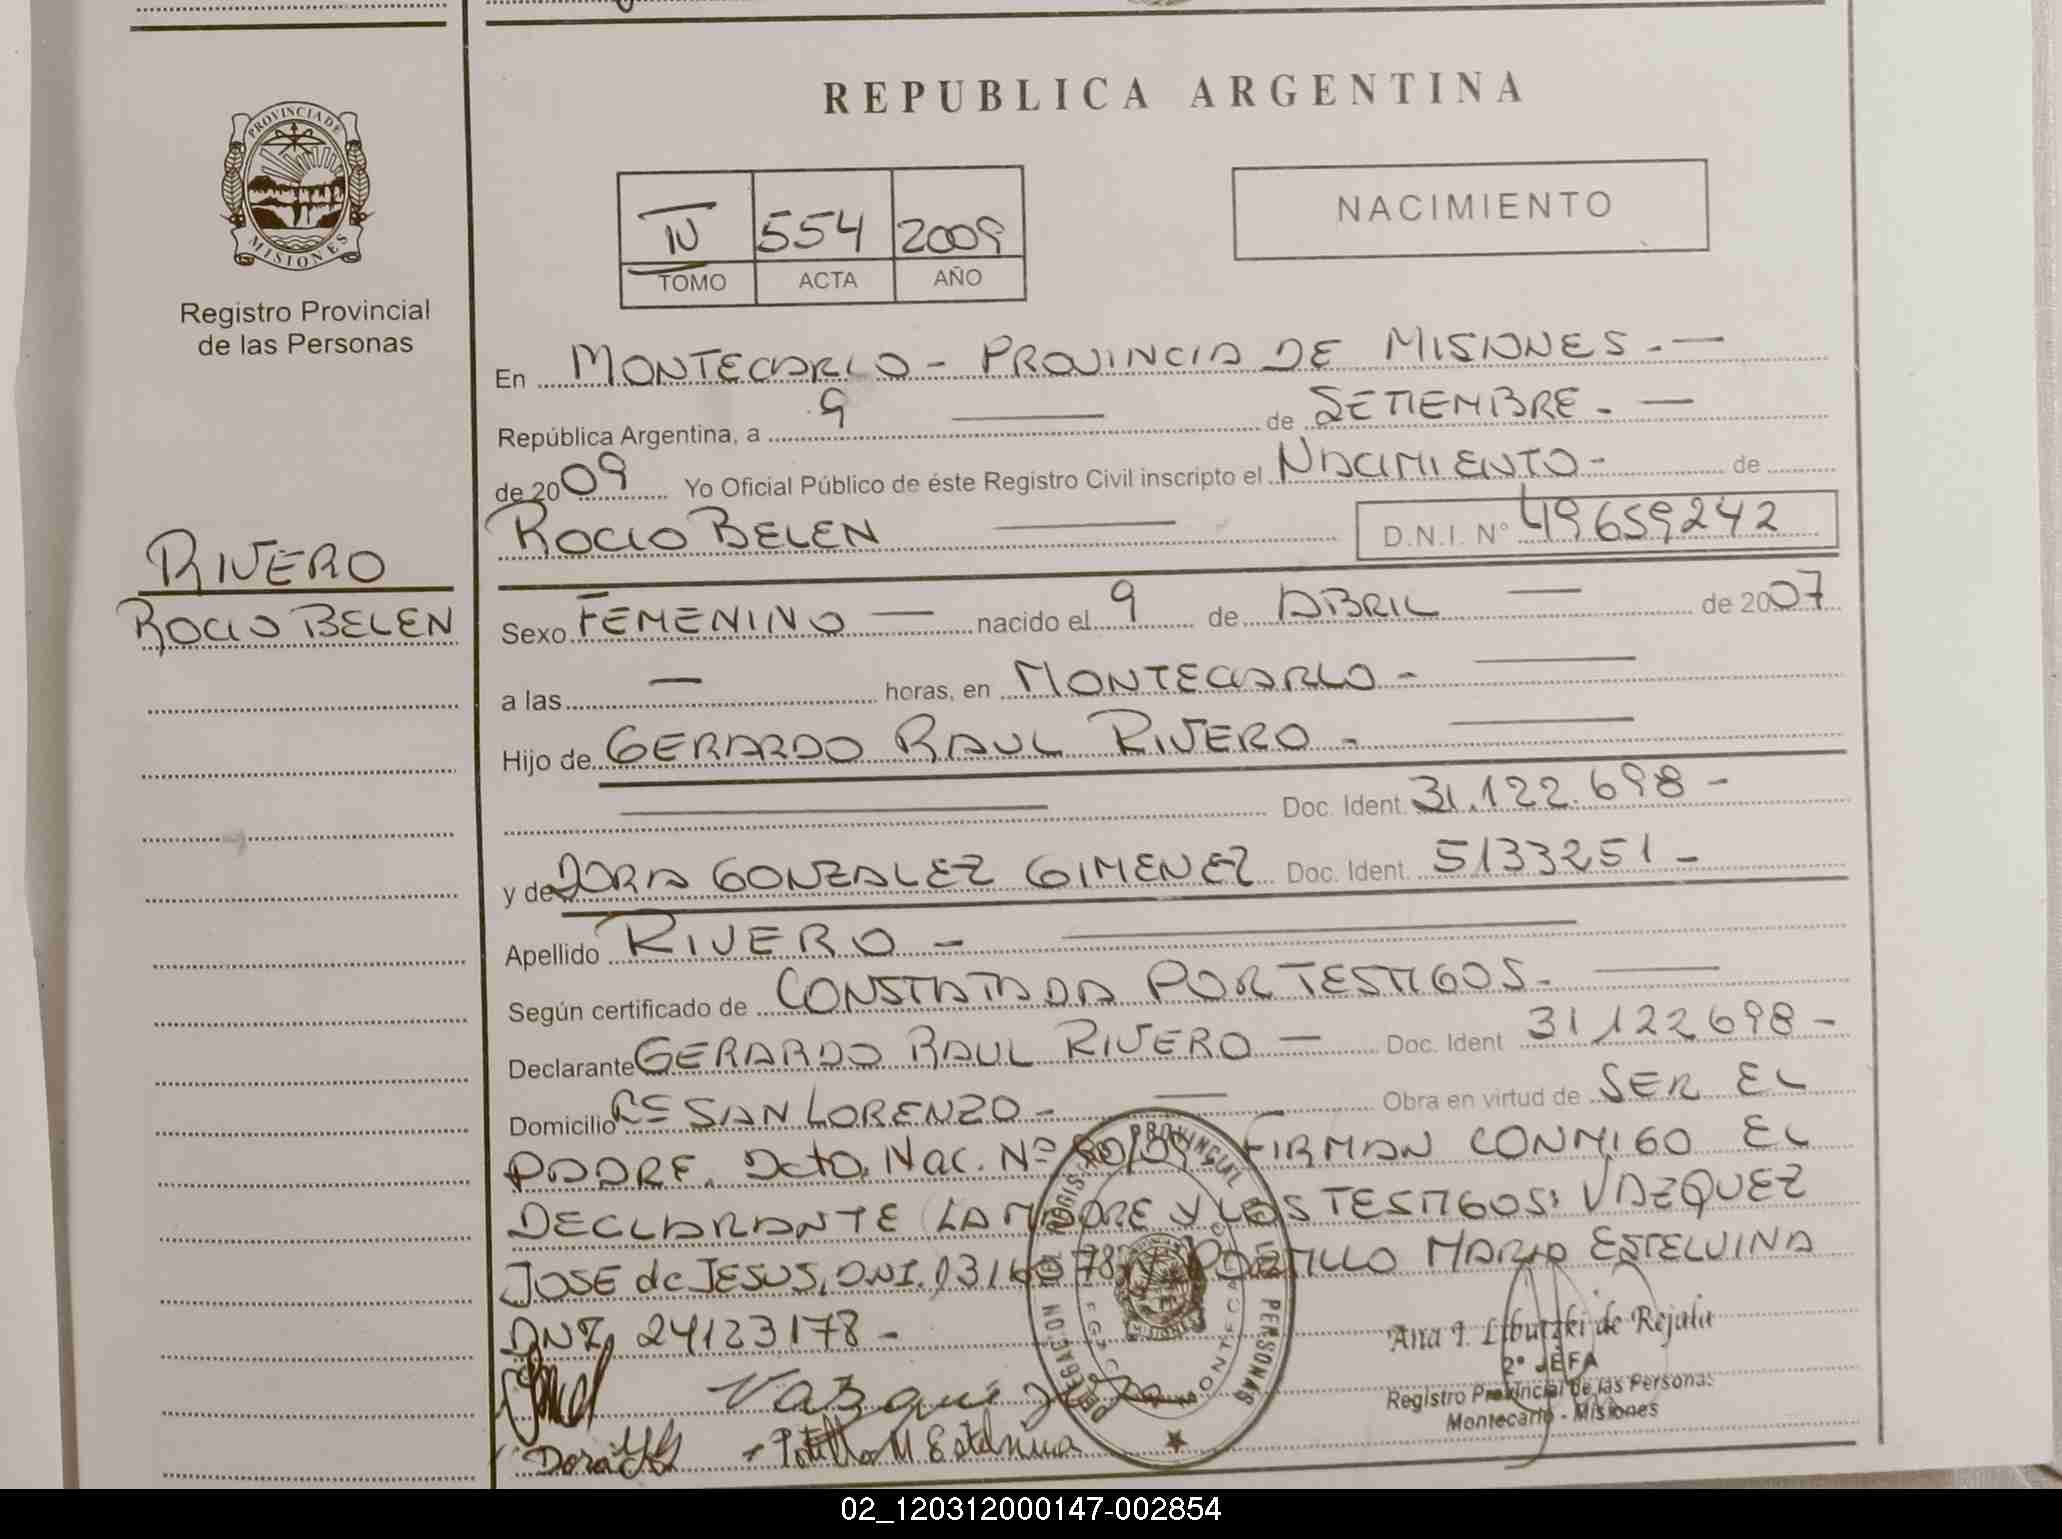 PROVINCIA DE
MISIONES
Registro Provincial
de las Personas
RIVERO
ROCIO BELEN
REPUBLICA ARGENTINA
IV 554 2009
TOMO ACTA AÑO
NACIMIENTO
En MONTECARLO - PROVINCIA DE MISIONES.-
República Argentina, a 9 — de SETIEMBRE.-
de 2009 Yo Oficial Público de éste Registro Civil inscripto el NACIMIENTO- de
ROCIO BELEN — D.N.I. N° 49659242
Sexo FEMENINO — nacido el 9 de ABRIL — de 2007
a las — horas, en MONTECARLO -
Hijo de GERARDO RAUL RIVERO -
Doc. Ident. 31.122.698-
y de DORA GONZALEZ GIMENEZ Doc. Ident. 5133251-
Apellido RIVERO -
Según certificado de CONSTATADA POR TESTIGOS-
Declarante GERARDO RAUL RIVERO — Doc. Ident 31122698-
Domicilio Rs SAN LORENZO - Obra en virtud de SER EL
PADRE. Dcto. Nac. Nº 90/09 FIRMAN CONMIGO EL
DECLARANTE LA MADRE Y LOS TESTIGOS: VAZQUEZ
JOSE de JESUS, DNI. PORTILLO MARIA ESTELVINA
DNI, 24123178-
Vazquez
Dora
Portillo M Estelvina
REGISTRO PROVINCIAL DE LAS PERSONAS
DELEGACION
MONTECARLO
Ana I. Libutzki de Rejala
2° JEFA
Registro Provincial de las Personas
Montecarlo - Misiones
02_120312000147-002854